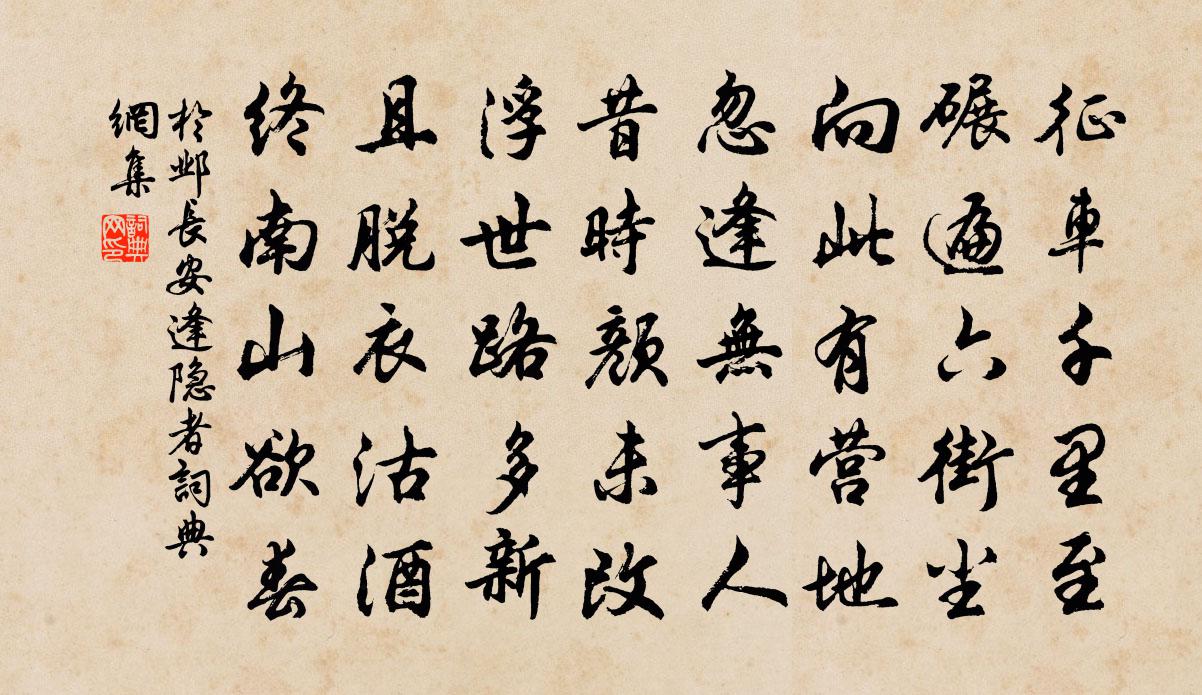 征車千里至
碾遍六街尘
向此有营地
忽逢無事人
昔時顔未改
浮世路多新
且脱衣沽酒
终南山欲春
於邺長安逢隐者詞典
網集
詞典
网印